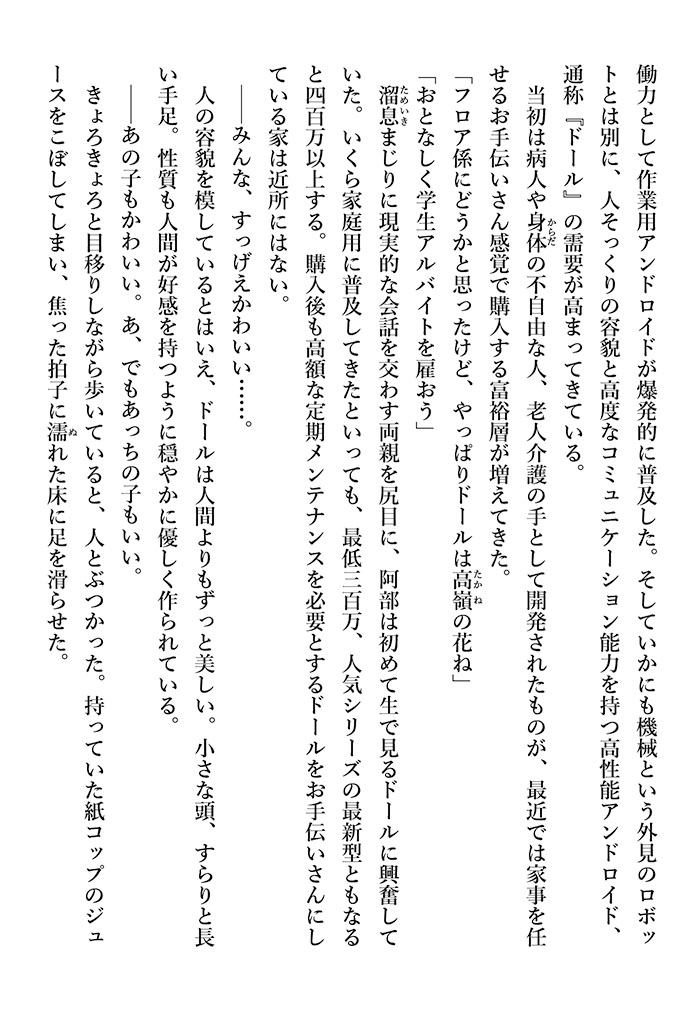 働力として作業用アンドロイドが爆発的に普及した。そしていかにも機械という外見のロボッ
トとは別に、人そっくりの容貌と高度なコミュニケーション能力を持つ高性能アンドロイド、
通称『ドール』の需要が高まってきている。
当初は病人や身体の不自由な人、老人介護の手として開発されたものが、最近では家事を任
せるお手伝いさん感覚で購入する富裕層が増えてきた。
「フロア係にどうかと思ったけど、やっぱりドールは高嶺の花ね」
「おとなしく学生アルバイトを雇おう」
溜息まじりに現実的な会話を交わす両親を尻目に、阿部は初めて生で見るドールに興奮して
いた。いくら家庭用に普及してきたといっても、最低三百万、人気シリーズの最新型ともなる
と四百万以上する。購入後も高額な定期メンテナンスを必要とするドールをお手伝いさんにし
ている家は近所にはない。
――みんな、すっげえかわいい……。
人の容貌を模しているとはいえ、ドールは人間よりもずっと美しい。小さな頭、すらりと長
い手足。性質も人間が好感を持つように穏やかに優しく作られている。
――あの子もかわいい。あ、でもあっちの子もいい。
きょろきょろと目移りしながら歩いていると、人とぶつかった。持っていた紙コップのジュ
ースをこぼしてしまい、焦った拍子に濡れた床に足を滑らせた。